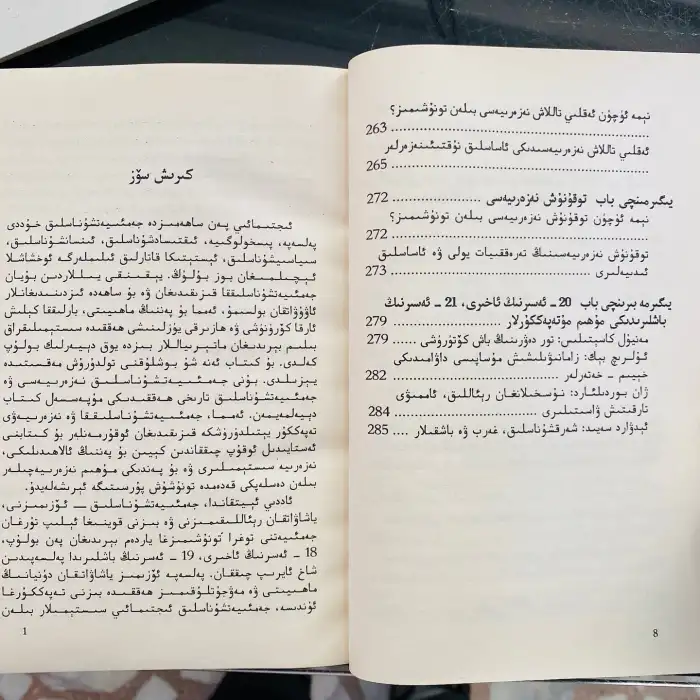 نېمە ئۈچۈن ئەقلىي تاللاش نەزەرىيەسى بىلەن تونۇشىمىز؟
263 ........................................
ئەقلىي تاللاش نەزەرىيەسىدىكى ئاساسلىق نۇقتىئىنەزەرلەر
265 ........................................
يىگىرمىنچى باب توقۇنۇش نەزەرىيەسى ............ 272
نېمە ئۈچۈن توقۇنۇش نەزەرىيەسى بىلەن تونۇشىمىز؟
272 ........................................
توقۇنۇش نەزەرىيەسىنىڭ تەرەققىيات يولى ۋە ئاساسلىق
ئىدىيەلىرى ........................................ 273
يىگىرمە بىرىنچى باب 20 - ئەسىرنىڭ ئاخىرى، 21 - ئەسىرنىڭ
باشلىرىدىكى مۇھىم مۇتەپەككۇرلار ............ 279
مەنيۇل كاستېلس: تور دەۋرىنىڭ باش كۆتۈرۈشى 279
ئۇلرىچ بېك: زامانىۋىلىشىش مۇساپىسى داۋامىدىكى
خېيىم - خەتەرلەر ........................................ 282
ژان بوردىلئارد: نۇسخىلانغان رېئاللىق، ئاممىۋى
تارقىتىش ۋاسىتىلىرى ........................................ 284
ئېدۋارد سەيىد: شەرقشۇناسلىق، غەرب ۋە باشقىلار .... 285
8
كىرىش سۆز
ئىجتىمائىي پەن ساھەمىزدە جەمئىيەتشۇناسلىق خۇددى
پەلسەپە، پىسخولوگىيە، ئىقتىسادشۇناسلىق، ئىنسانشۇناسلىق،
سىياسىيشۇناسلىق، ئېستېتىكا قاتارلىق ئىلىملەرگە ئوخشاشلا
ئېچىلمىغان بوز يەر بۇلۇڭ. يېقىنقى يىللاردىن بۇيان
جەمئىيەتشۇناسلىققا قىزىققىدىغان ۋە بۇ ساھەدە ئىزدىنىدىغانلار
ئاۋۇۋاتقان بولسىمۇ، ئەمما بۇ پەننىڭ ماھىيىتى، بارلىققا كېلىش
ئارقا كۆرۈنۈشى ۋە ھازىرقى يۈزلىنىشى ھەققىدە سىستېمىلىقراق
بىلىم بېرىدىغان ماتېرىياللار بىزدە يوق دېيەرلىك بولۇپ
كەلدى. بۇ كىتاب ئەنە شۇ بوشلۇقنى تولدۇرۇش مەقسىتىدە
يېزىلدى. بۇنى جەمئىيەتشۇناسلىق نەزەرىيەسى ۋە
جەمئىيەتشۇناسلىق تارىخى ھەققىدىكى مۇپەسسەل كىتاب
دېيەلمەيمەن. ئەمما، جەمئىيەتشۇناسلىققا ۋە نەزەرىيەۋى
تەپەككۇر يېتىلدۈرۈشكە قىزىققىدىغان ئوقۇرمەنلەر بۇ كىتابنى
ئەستايىدىل ئوقۇپ چىققاندىن كېيىن بۇ پەننىڭ ئالاھىدىلىكى،
نەزەرىيە سىستېمىلىرى ۋە بۇ پەندىكى مۇھىم نەزەرىيەچىلەر
بىلەن دەسلەپكى قەدەمدە تونۇشۇش پۇرسىتىگە ئېرىشەلەيدۇ.
ئاددىي ئېيتقاندا، جەمئىيەتشۇناسلىق — ئۆزىمىزنى،
ياشاۋاتقان رېئاللىقىمىزنى ۋە بىزنى قوينىغا ئېلىپ تۇرغان
جەمئىيەتنى توغرا تونۇشىمىزغا ياردەم بېرىدىغان پەن بولۇپ،
18 - ئەسىرنىڭ ئاخىرى، 19 - ئەسىرنىڭ باشلىرىدا پەلسەپىدىن
شاخ ئايرىپ چىققان. پەلسەپە ئۆزىمىز ياشاۋاتقان دۇنيانىڭ
ماھىيىتى ۋە مەۋجۇتلۇقىمىز ھەققىدە بىزنى تەپەككۇرغا
ئۈندىسە، جەمئىيەتشۇناسلىق ئىجتىمائىي سىستېمىلار بىلەن
1